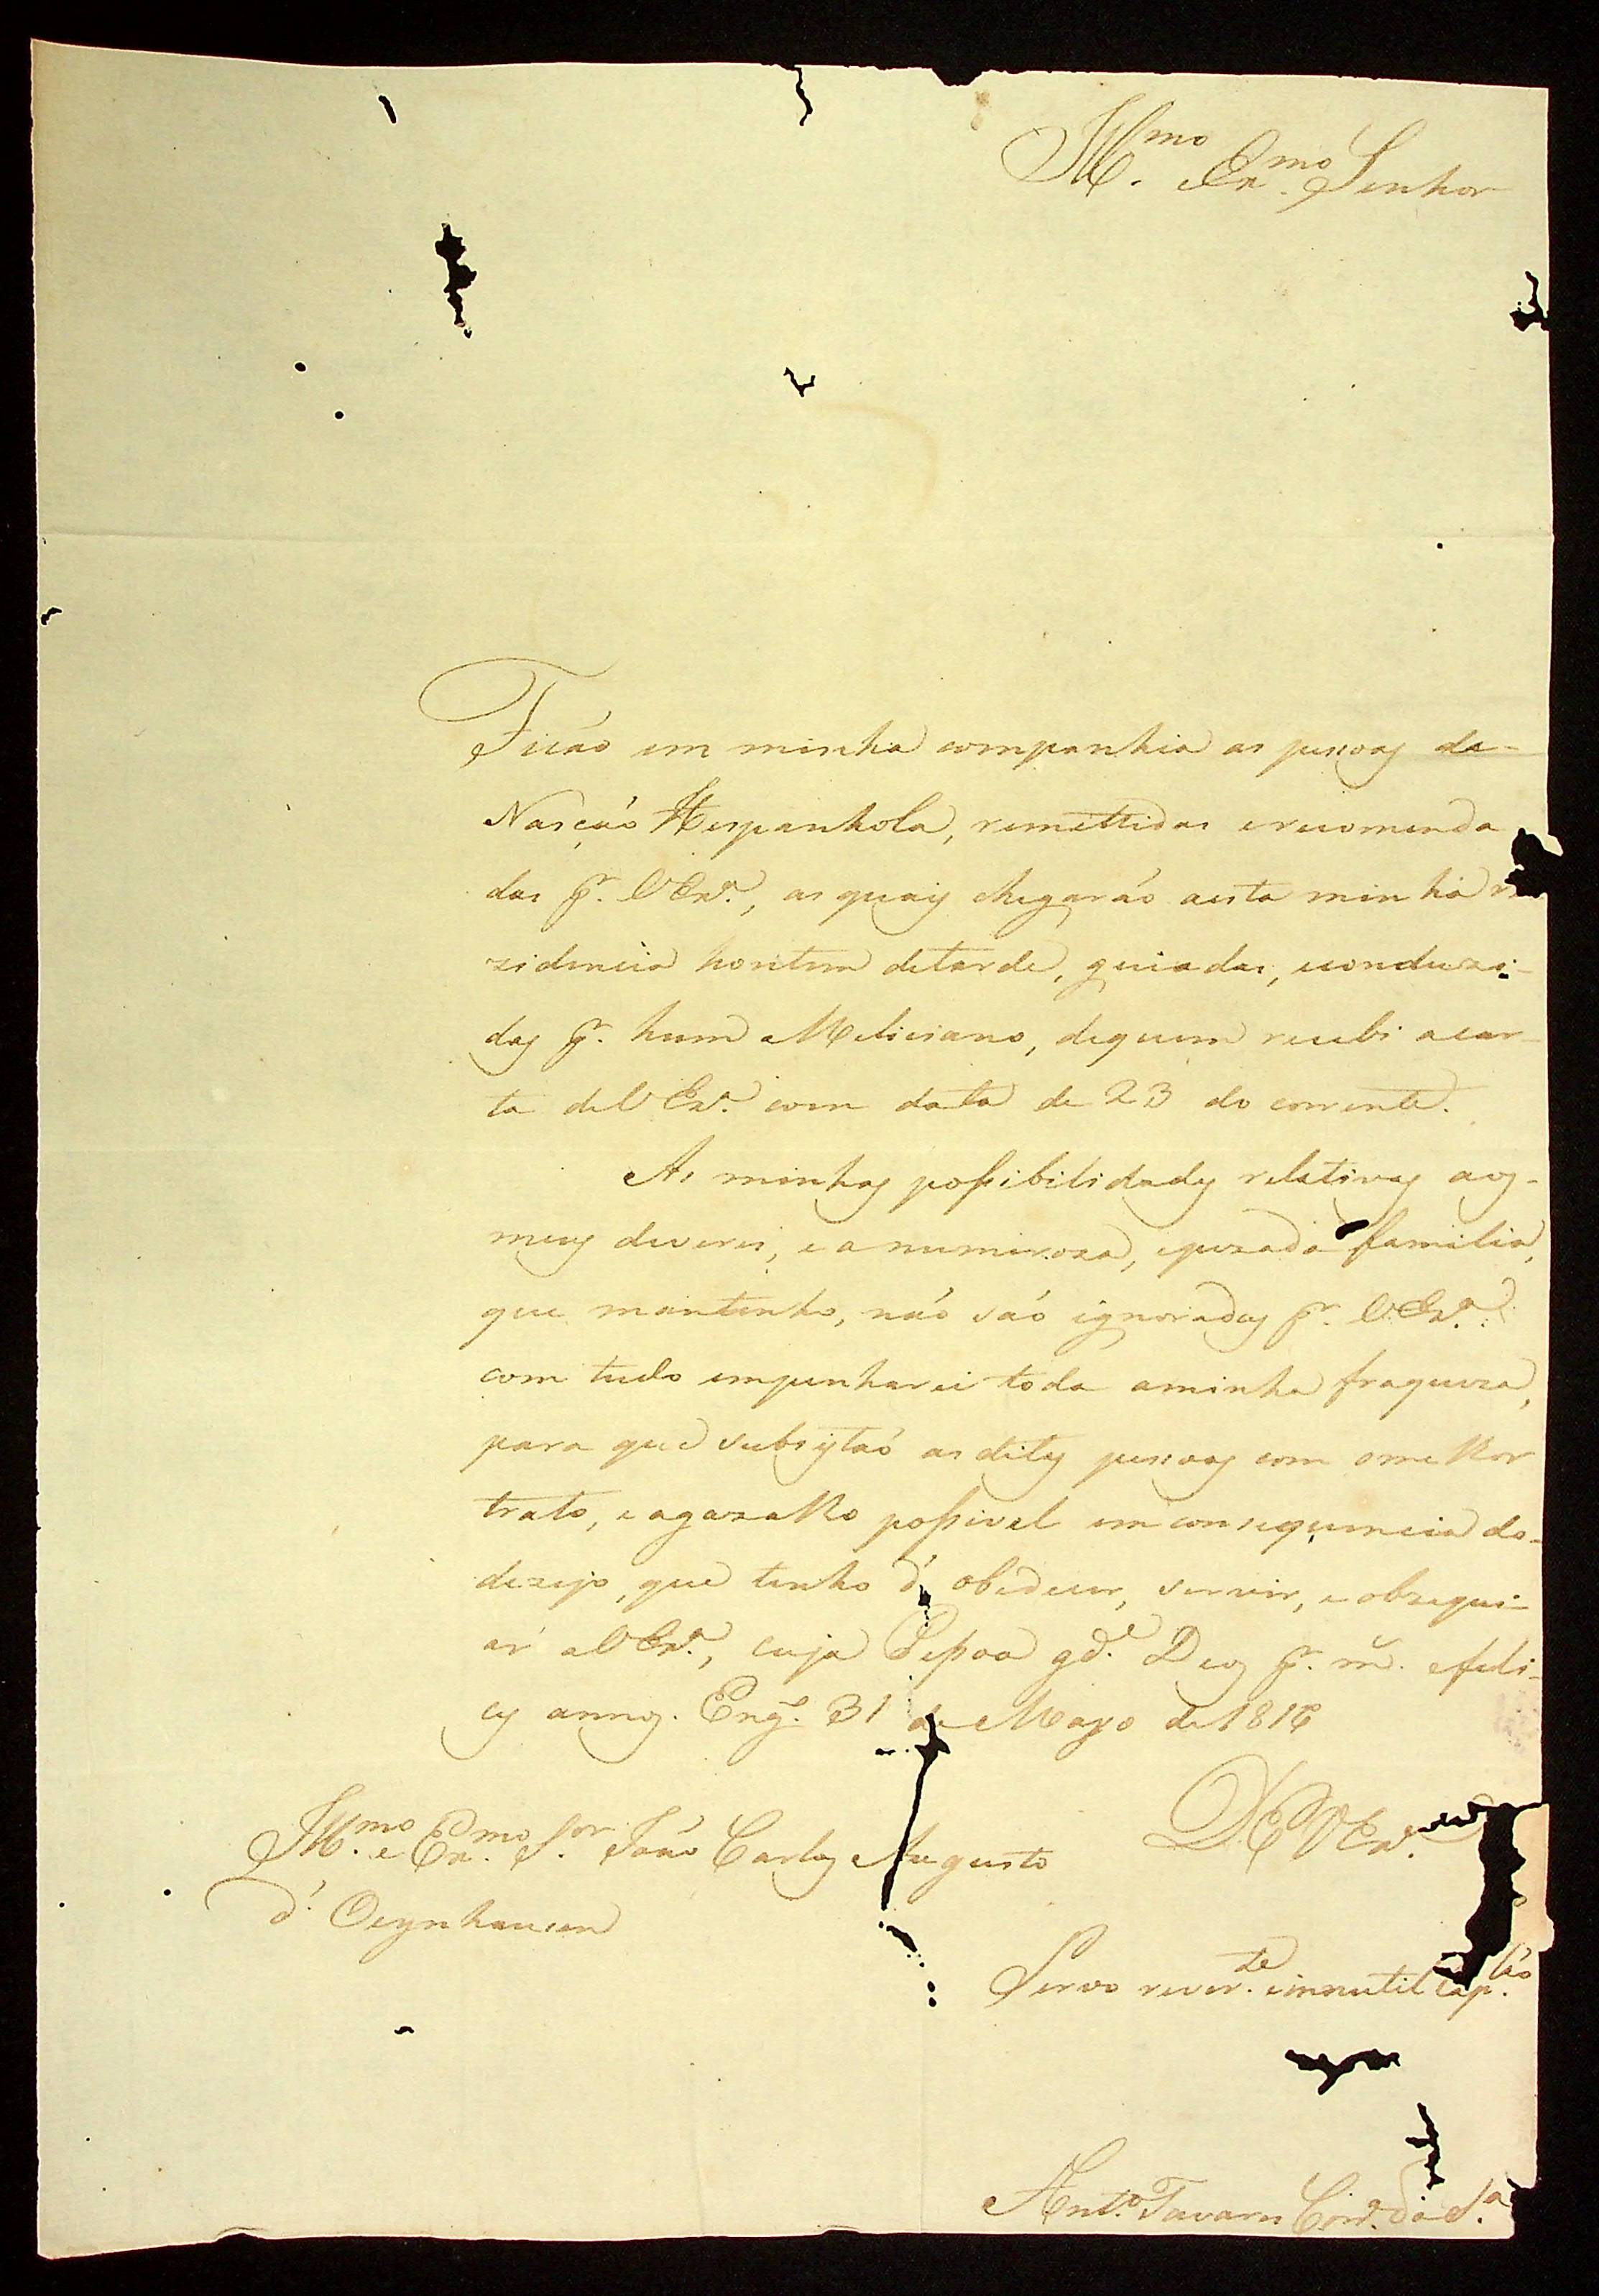 Ill.mo e Ex.mo Senhor
Ficáo em minha companhia as pessoas da
Nasçáo Hespanhola, remettidas e recomenda
das p.r V Ex.a, as quais chegaráo a esta minha re
zidencia hontem de tarde, guiadas, e conduzi-
das p.r hum Meliciano, de quem recebi a car-
ta de V Ex.a com data de 23 do corrente.
As minhas possibilidades relativas aos
meus deveres, e a numeroza, e pezada familia,
que mantenho, náo sáo ignoradas p.r V Ex.a:
com tudo empenharei toda a minha fraqueza,
para que subsistáo as ditas pessoas com o melhor
trato, e agazalho possivel em consequencia do
dezejo, que tenho d' obedecer, servir, e obzequi-
ar a V Ex.a, cuja Pessoa g.de Deos p.r m. e feli-
ces annos. Eng.o 31 de Mayo de 1816
Ill.mo e Ex.mo S.or Joáo Carlos Augusto
d' Oeynhausen
D E V Ex.a
Servo rever.te e innutil Cap.
Ant.o Tavares Corr.a da S.a